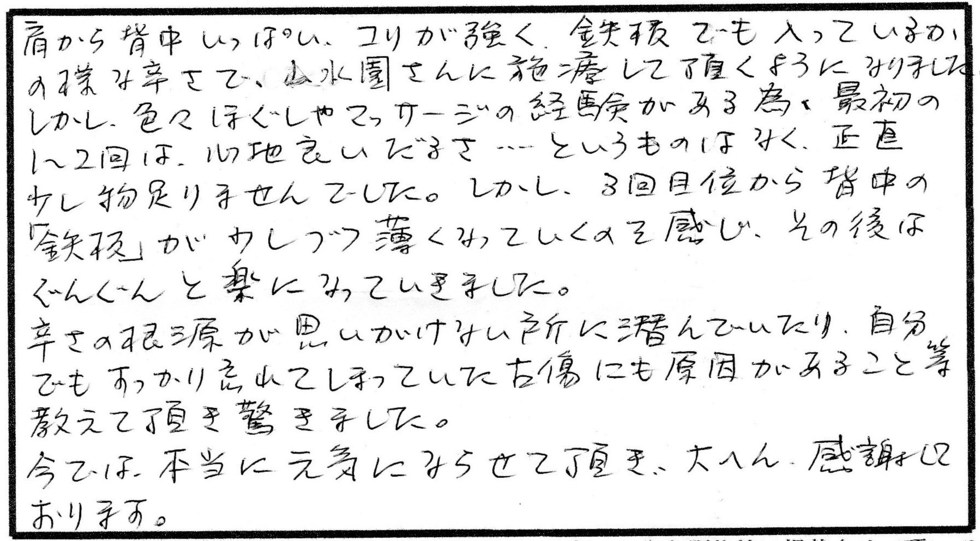 肩から背中いっぱい、コリが強く、鉄板でも入っているか
の様な辛さで、山水園さんに施療して頂くようになりました
しかし、色々ほぐしやマッサージの経験がある為、最初の
1~2回は、心地良いだるさ……というものはなく、正直
少し物足りませんでした。しかし、3回目位から背中の
「鉄板」が少しづつ薄くなっていくのを感じ、その後は
ぐんぐんと楽になっていきました。
辛さの根源が思いがけない所に潜んでいたり、自分
でもすっかり忘れてしまっていた古傷にも原因があること等
教えて頂き驚きました。
今では、本当に元気にならせて頂き、大へん、感謝して
おります。